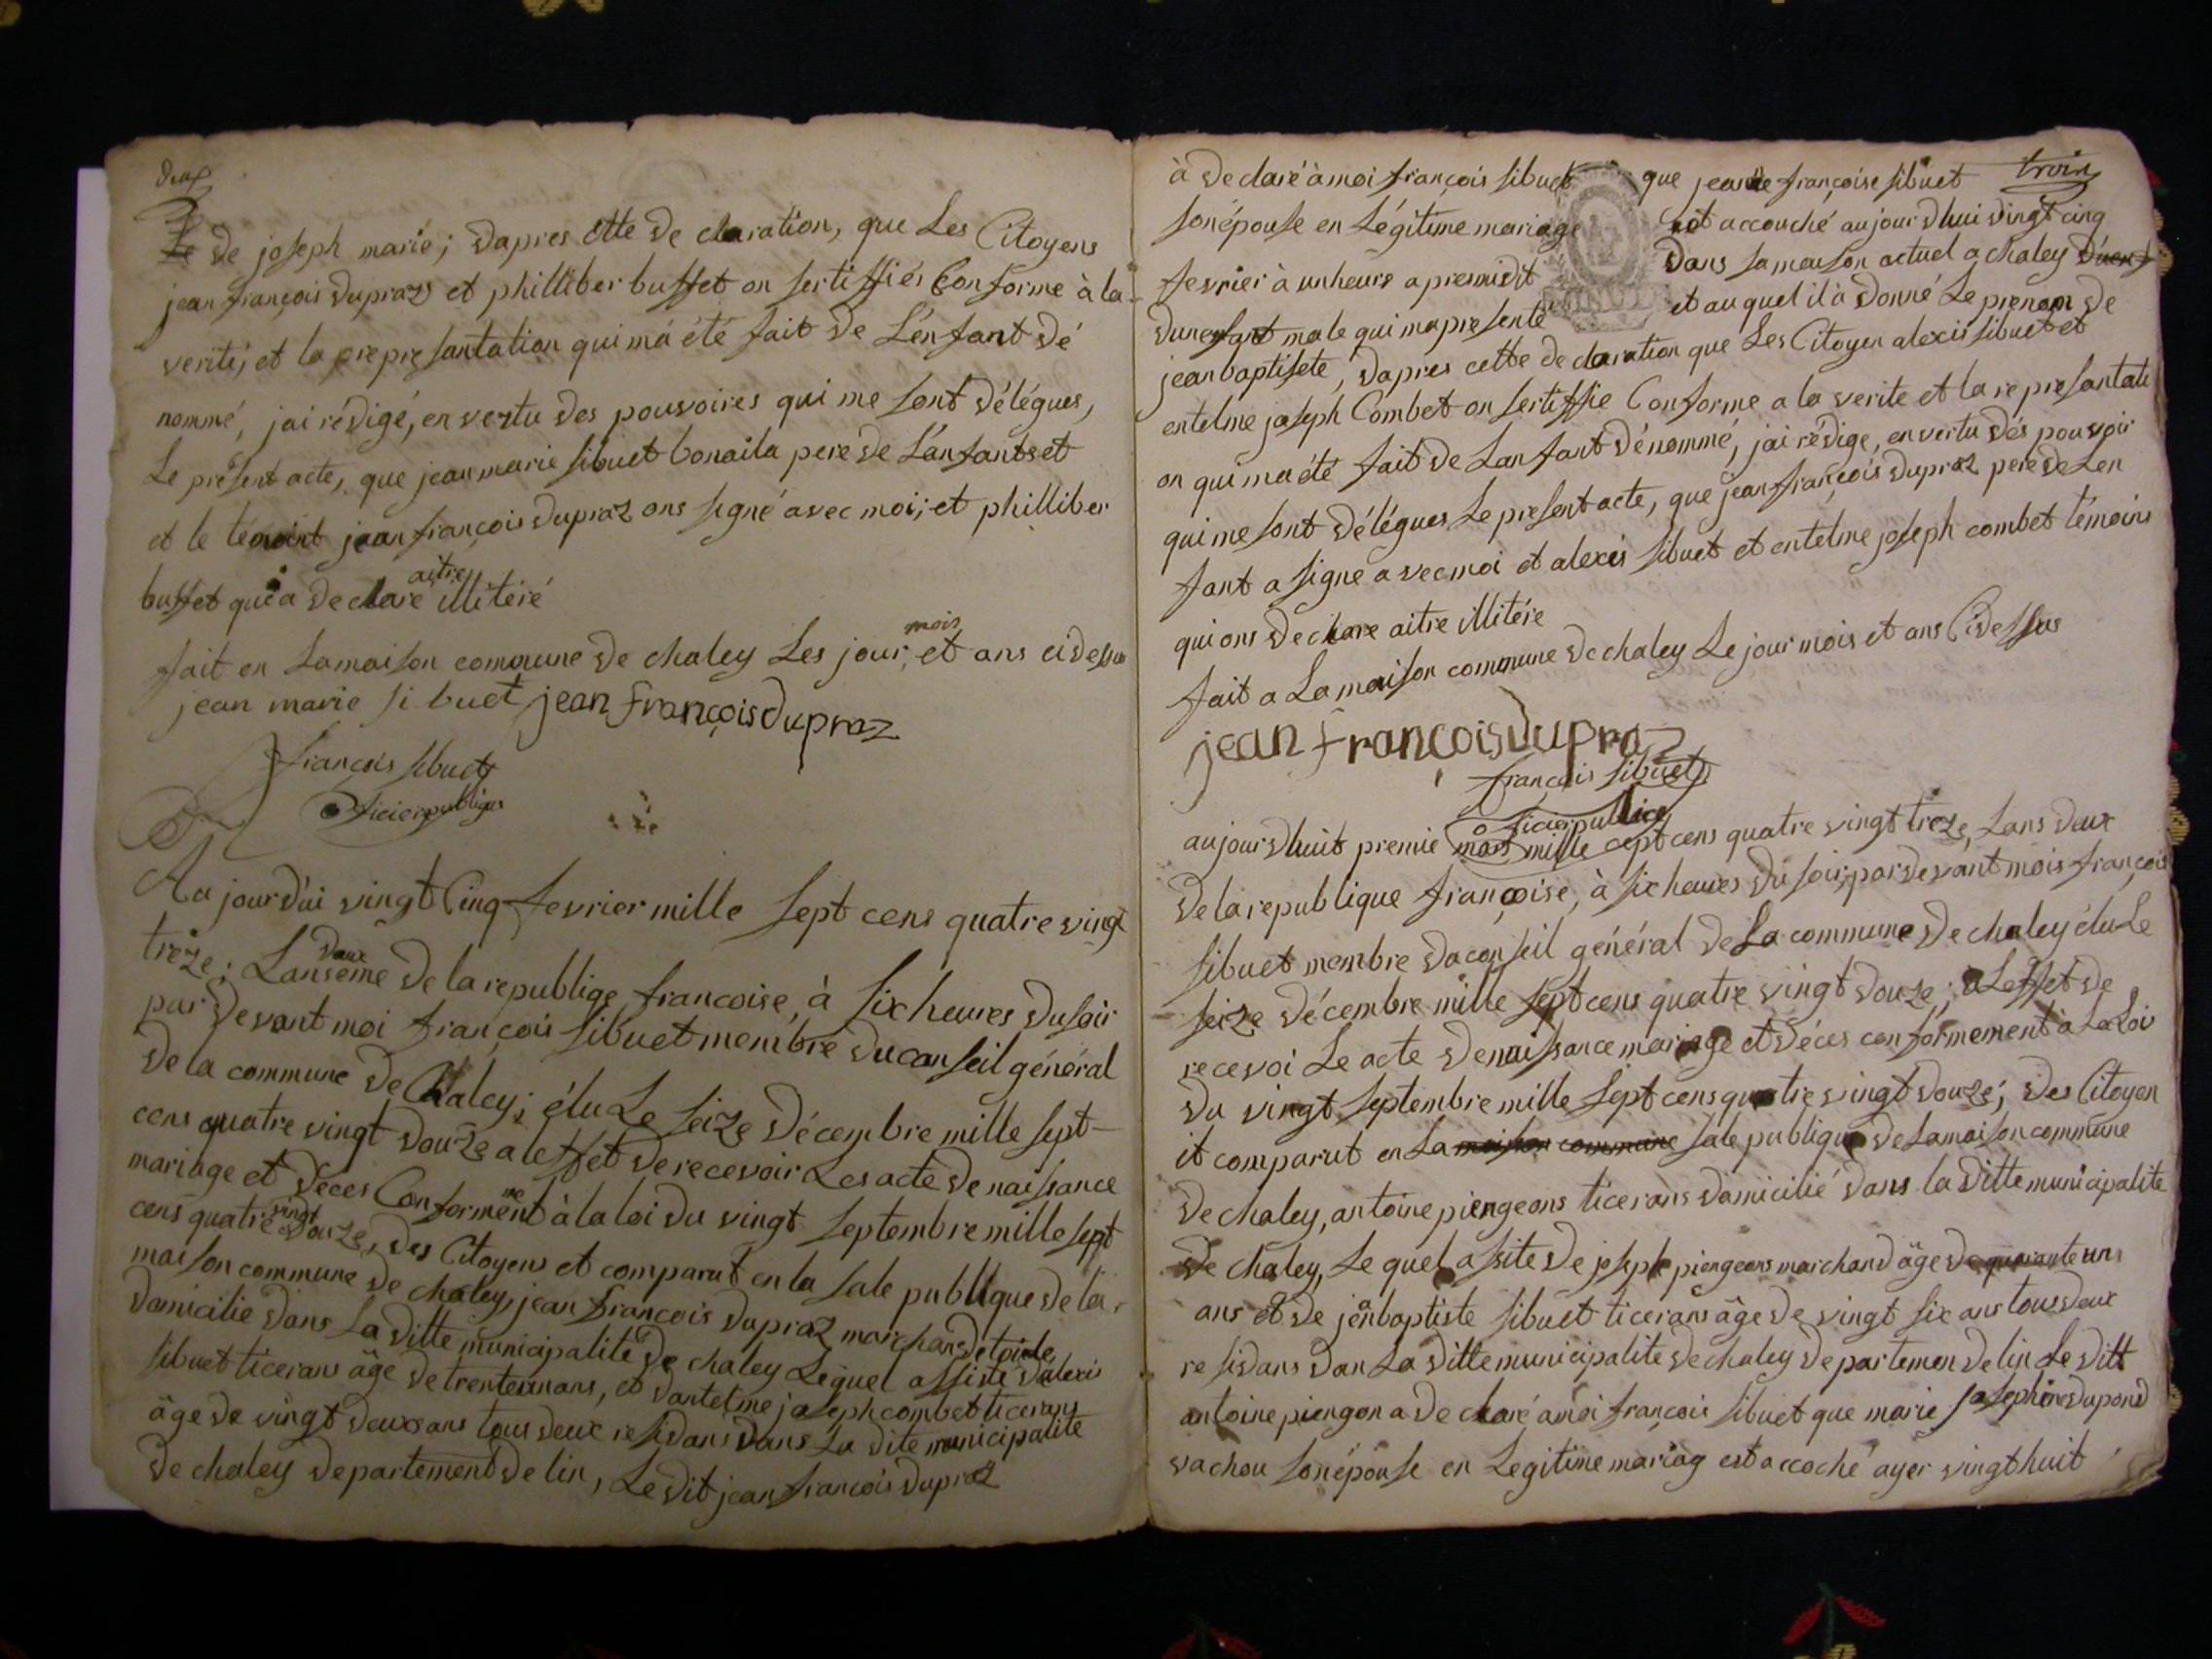 deux
de joseph marie; dapres cette de claration, que Les Citoyens
jean françois dupraz et philliber buffet on sertiffiér Conforme à la
verité, et la prepresantation qui má été fait de L'enfant dé
nommé, jai rédigé, en vertu des pouvoires qui me sont délégues,
Le present acte, que jean marie sibuet bonaila pere de L'anfant et
et le témoint jean françois dupraz ons signé avec moi; et philliber
buffet qui a declaré aitre illitéré
fait en Lamaison commune de chaley Les jour, mois et ans cidessu
jean marie si buet jean françois dupraz
françois sibuet
oficier publique
Au jourd'ui vingt Cinq fevrier mille sept cens quatre vingt
treze; Lans deuxeme de la republige francoise, à six heures du soir
par devant moi françois sibuet membre du conseil général
de la commune de Chaley; élu Le seize décembre mille sept-
cens quatre vingt douze a leffet de recevoir Les acte de naissance
mariage et déces Conformement à la loi du vingt septembre mille sept
cens quatre vingt douze, des Citoyens et comparut en la sale publique de la
maison commune de chaley, jean françois dupraz marchand de toile,
domicilie dans La ditte municipalité de chaley Lequel assisté d'alexis
sibuet ticerans âge de trente un ans, et dantelme joseph combet ticerans
âge de vingt deux ans tous deux residans dans La dite municipalite
de chaley departement de lin, Le dit jean françois dupraz
trois
à declaré à moi françois sibuet que jeane françoise sibuet
son épouse en Légitime mariage est accouché aujourdhui vingt cinq
fevrier à un heure apremidit dans sa maison actuel a chaley
dun enfant male qui ma presenté et au quel il à donné Le prenom de
jean baptisete, dapres cette declaration que Les Citoyen alexis sibuet et
entelme joseph Combet on sertiffie Conforme a la verite et la represantati
on qui ma été fait de Lanfant dénommé, jai rédige, en vertu dés pouvoir
qui me sont délégues Le present acte, que jean françois dupraz pere de Len
fant a signe avec moi et alexis sibuet et entelme joseph combet témoins
qui ons declare aitre illitére
fait a La maison commune de chaley Le jour mois et ans Cidessus
jean françois dupraz
françois sibuet
oficier publice
aujourdhuit premie mars mille cept cens quatre vingt treze, Lans deux
de la republique françoise, à six heures du soir, par devant mois françois
sibuet membre du conseil général de La commune de chaley élu Le
seize décembre mille sept cens quatre vingt douze; a Leffet de
recevoi Le acte de naissance mariage et déces conformement à La Loi
du vingt septembre mille sept cens quatre vingt douze; des Citoyen
it comparut en La maison commune sale publique de La maison commune
de chaley, antoine piengeons ticerans domicilié dans la ditte municipalite
de chaley, Le quel assite de joseph piengeons marchand âge de quarante uns
ans et de jean baptiste sibuet ticerans âge de vingt six ans tous deux
residans dan La ditte municipalite de chaley departemen de lin Le ditt
antoine piengon a declaré a moi françois sibuet que marie josephine dupond
vachou son épouse en Legitime mariag est accoché ayer vingt huit